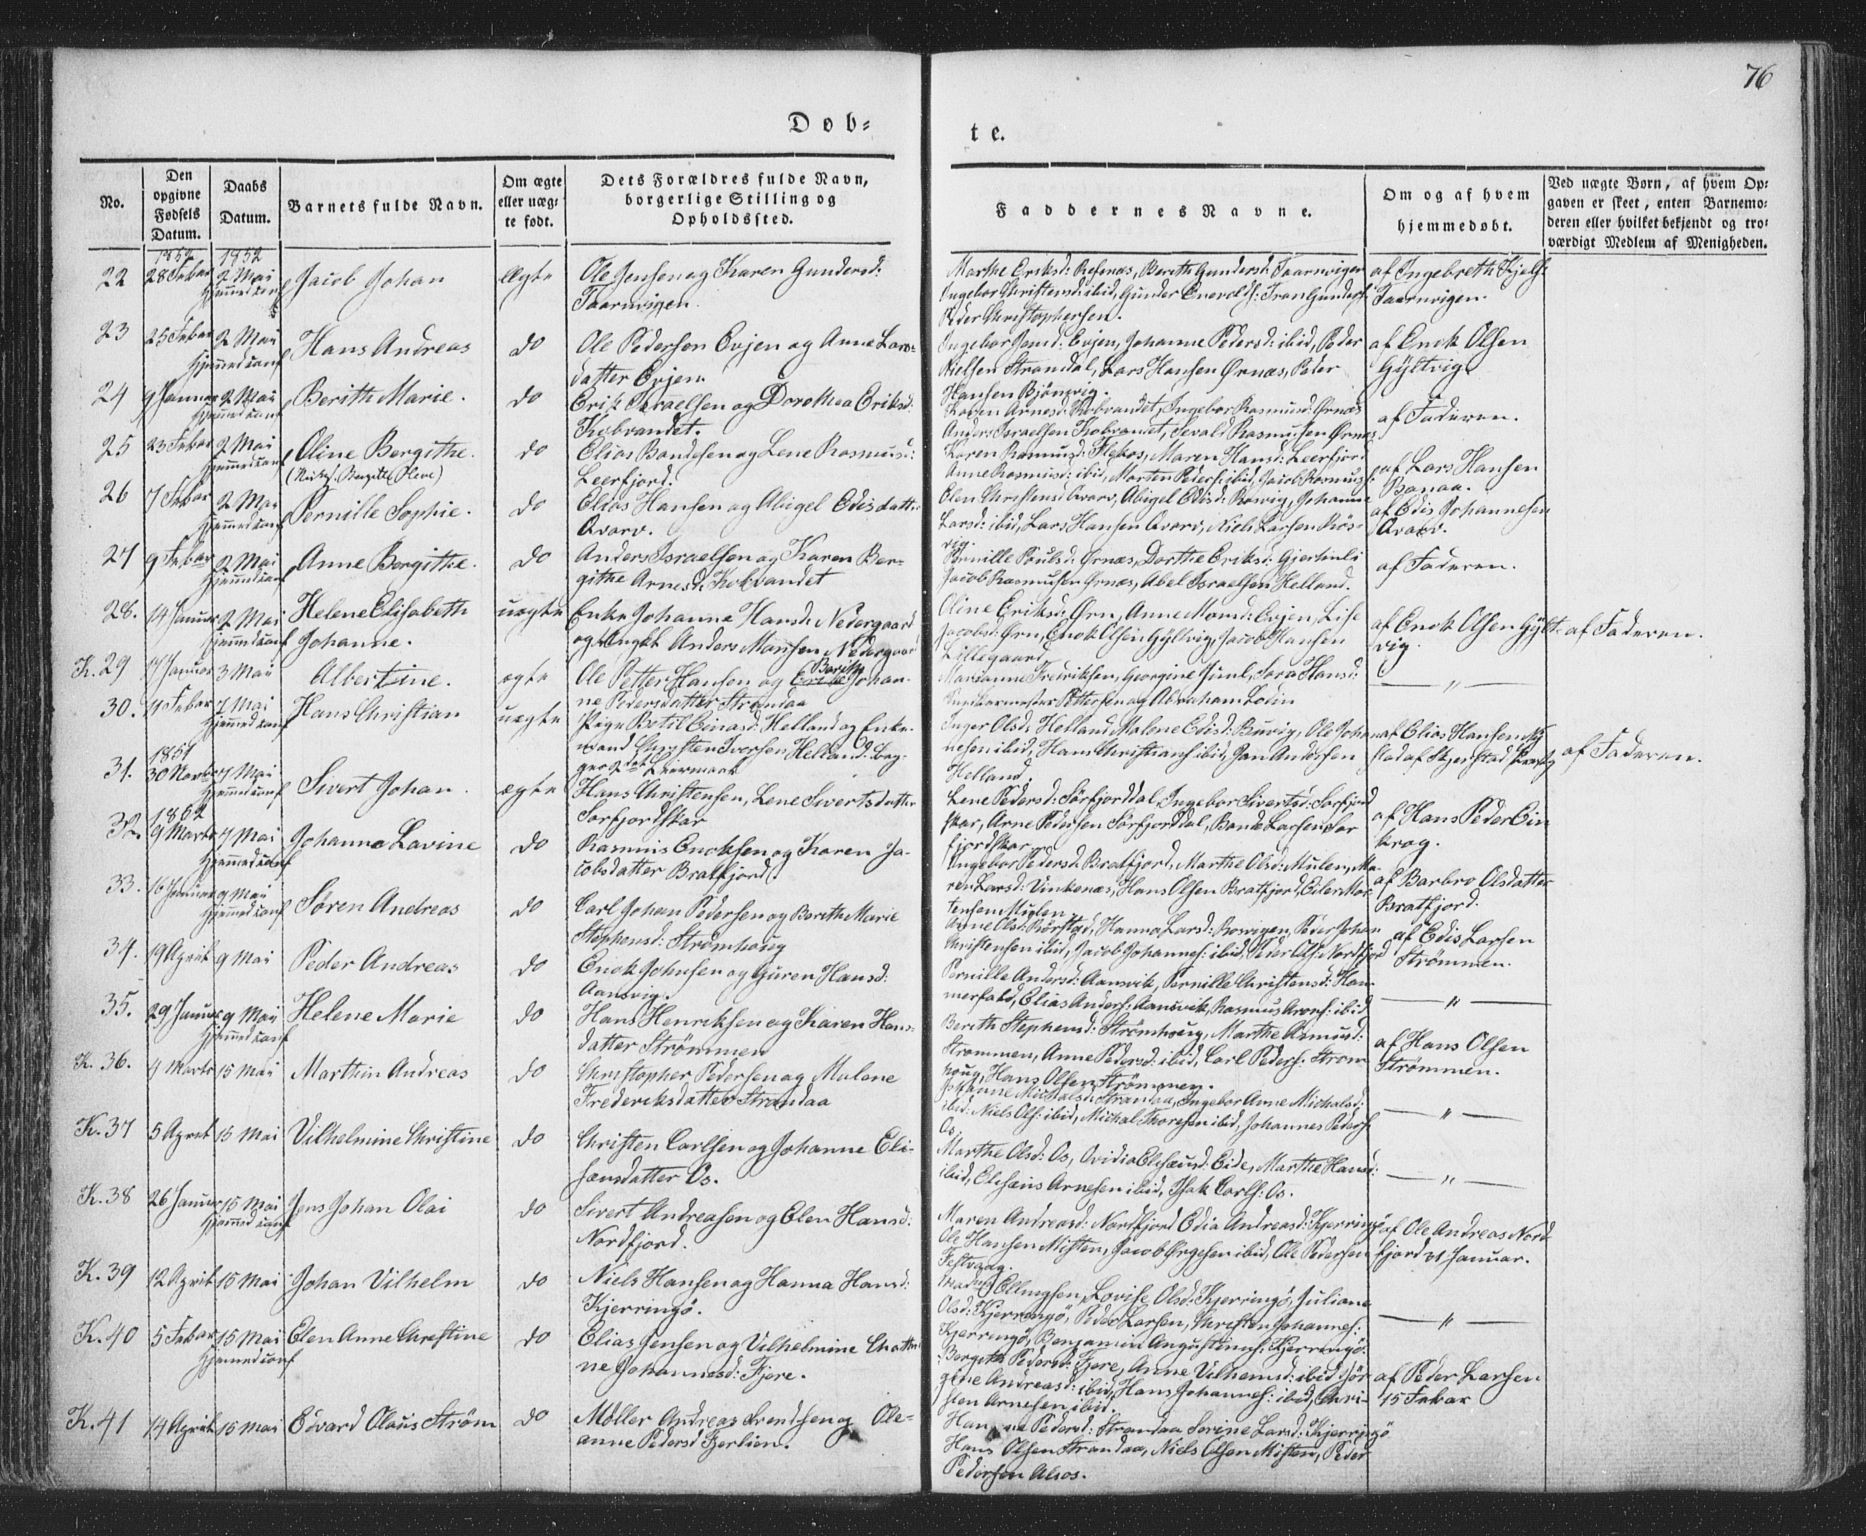 76
Døb-
te.
No.
Den opgivne Fødsels Datum.
Daabs Datum.
Barnets fulde Navn.
Om ægte eller uægte født.
Dets Forældres fulde Navn, borgerlige Stilling og Opholdssted.
Faddernes Navne.
Om og af hvem hjemmedøbt.
Ved uægte Børn, af hvem Opgaven er skeet, enten Barnemoderen eller hvilket bekjendt og troværdigt Medlem af Menigheden.
1852 1852
22 28 Febar 2 Mai Jacob Johan Ægte Ole Jensen og Karen Gundersd:
Taarnvigen.
Marthe Eriksd: Refsnæs, Berith Gundersd: Taarnvigen
Ingebor Christensd: ibid, Gunder Enevolds: Gunders:
Peder Christophersen.
af Ingebreth
Taarnvigen.
23 25 Febar 2 Mai Hans Andreas do Ole Pedersen Evjen og Anne Lars-
datter Evjen.
Ingebor Jensd: Evjen, Johanne Pedersd: ibid, Peder
Nielsen Strandal, Lars Hansen Ørnæs, Peder
Hansen Björnvig.
af Enok Olsen
Gyltvig
24 9 Januar 2 Mai Berith Marie. do Erik Israelsen og Dorothea Eriksd:
Kobvandet.
Karen Arnesd: Kobvandet, Ingebor Rasmusd: Ørnæs
Anders Israelsen Kobvandet, Sevald Rasmusen Ørnæs
af Faderen.
25 23 Febar 2 Mai Oline Bergithe. do Elias Bandesen og Lene Rasmusd:
Leerfjord.
Karen Rasmusd: Maren Hansd: Leerfjord
Anne Rasmusd: ibid, Morten Peders: ibid, Jacob Rasmus:
af Lars Hansen
Bonaa.
26 7 Febar 2 Mai Pernille Sophie. do Elias Hansen og Abigel Edisdatter
Qvarv.
Elen Christensd: Qvarv, Abigel Edisd: Røsvig, Johanne
Larsd: ibid, Lars Hansen Qvarv, Niels Larsen Røs-
vig.
af Edis Johannesen
Qvarv.
27 9 Febar 2 Mai Anne Bergithe. do Anders Israelsen og Karen Ber-
githe Arnesd: Kobvandet
Pernille Poulsd: Ørnæs, Dorthe Eriksd:
Jacob Rasmusen Ørnæs, Abel Israelsen Helland.
af Faderen.
28. 14 Januar 2 Mai Helene Elisabeth
Johanne.
uægte Enke Johanna Hansd: Nedergaard
og Ungk: Anders Monsen Nedergaard
Oline Eriksd: Ørn, Anne Monsd: Evjen, Lise
Jacobsd: Ørn, Enok Olsen Gyltvig, Jacob Hansen
Lillegaard
af Enok Olsen Gylt-
vig.
af Faderen.
K. 29 17 Januar 3 Mai Albertine. ægte Ole Petter Hansen og Berith Johan-
ne Pedersdatter Strandaa
Marianne Fredriksen, Georgine Juul, Sara Hansd:
Pettersen og Abraham Lodin
— " —
30. 11 Febar 7 Mai Hans Christian uægte Pige Botil Einarsd: Helland og Enke-
mand Christen Iversen Helland. Beg-
ges 2det Leiermaal
Inger Olsd: Helland, Malene Edisd: Buvig, Ole Johan-
nesen ibid, Hans Christians: ibid, Jan Andersen
Helland.
af Elias Hansen
af Faderen.
1851
31. 30 Novbr 7 Mai Sivert Johan. ægte Hans Christensen, Lene Sivertsdatter
Sørfjordskar
Lene Pedersd: Sørfjorddal, Ingebor Sivertsd: Sørfjord
skar, Arne Pedersen Sørfjorddal, Bande Larsen Sør
fjordskar
af Hans Peder Ein
krog.
1852
32. 9 Marts 7 Mai Johanna Lavine do Rasmus Enoksen og Karen Ja-
cobsdatter Bratfjord.
Ingebor Pedersd: Bratfjord, Marthe Olsd: Mulen, Ma-
ren Larsd: Vinkenæs, Hans Olsen Bratfjord, Eiler Mor-
tensen Mulen
af Barbro Olsdatter
Bratfjord.
33. 16 Januar 9 Mai Søren Andreas do Carl Johan Pedersen og Berith Marie
Stephensd: Strømhoug
Anne Olsd: Rørstad, Hanna Larsd: Rosvigen, Peder Johan
Christensen ibid, Jacob Johannes: ibid, Peder Ols: Nordfjord
af Edis Larsen
Strømmen.
34. 19 April 9 Mai Peder Andreas do Enok Johnsen og Guren Hansd:
Aansvig.
Pernille Andersd: Aansvik, Pernille Christensd: Ham-
merfald, Elias Anders: Aansvik, Rasmus ibid
— " —
35. 29 Januar 9 Mai Helene Marie do Hans Henriksen og Karen Hans-
datter Strømmen
Berith Stephensd: Strømhoug, Marthe Asmusd:
Strømmen, Anne Pedersd: ibid, Carl Peders: Strøm-
houg, Hans Olsen Strømmen.
af Hans Olsen
Strømmen.
K. 36. 4 Marts 15 Mai Marthin Andreas do Christopher Pedersen og Malene
Frederiksdatter Strandaa
Johanne Michalsd: Strandaa, Ingebor Anne Michalsd:
ibid: Niels Ols: ibid, Michal Thoresen ibid, Johannes Peders:
Os.
— " —
K. 37 5 April 15 Mai Vilhelmine Christine do Christen Carlsen og Johanne Eli-
sæusdatter Os.
Marthe Olsd: Os, Ovidia Elisæusd: Eide, Marthe Hansd:
ibid, Elisæus Arnesen ibid, Isak Carls: Os.
— " —
K. 38 26 Januar 15 Mai Jens Johan Olai do Sivert Andreasen og Elen Hansd:
Nordfjord.
Maren Andreasd: Nordfjord Edia Andreasd: Kjerringø
Ole Hansen Misten, Jacob ibid, Ole Pedersen
Festvaag.
af Ole Andreas Nord
fjord 31 Januar.
K. 39 12 April 15 Mai Johan Vilhelm do Niels Hansen og Hanna Hansd:
Kjerringö.
Ellingsen, Lovise Olsd: Kjerringö, Juliane
Olsd: Kjerringö, Peder Larsen, Christen Johannes:
Kjerringö, Benjamin Augustinus: Kjerringö.
— " —
K. 40 5 Febar 15 Mai Elen Anne Christine do Elias Jensen og Vilhelmine Chatri-
ne Johannesd: Fjere.
Bergith Pedersd: Fjere, Anne Vilhemsd: ibid Jör
gine Andreasd: ibid, Hans Johannes: ibid, Chri-
sten Arnesen ibid.
af Peder Larsen
15 Febar
K. 41 14 April 15 Mai Edvard Olaus Strøm do Møller Andreas Svendsen og Ole-
anne Pedersd Fjerlien.
Pedersd: Strandaa Sorine Larsd: Kjerringö
Hans Olsen Strandaa, Niels Olsen Misten, Peder
Pedersen Alsos.